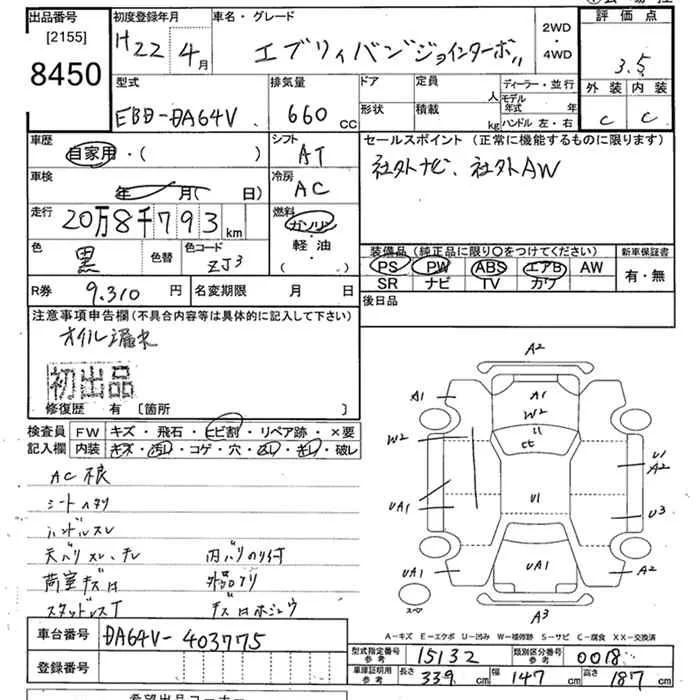 出品番号 初度登録年月 車名・グレード 2WD・4WD 評価点
[2155] 8450 H22年4月 エブリィバンジョインターボ 3.5
型式 排気量 ドア 定員 人 ディーラー・並行 外装 内装
EBD-DA64V 660 CC 形状 積載 kg モデル年式 年 ハンドル 左・右 C C
車歴 シフト セールスポイント (正常に機能するものに限ります)
自家用・( ) AT 社外ナビ、社外AW
車検 年 月( 日) 冷房 AC
走行 20万8千793km 燃料 ガソリン・軽油・( )
色 黒 色替 色コード ZJ3
装備品 (純正品に限り○をつけてください) 新車保証書
PS PW ABS エアB AW 有・無
SR ナビ TV カワ
R券 9.310円 名変期限 月 日 後日品
注意事項申告欄(不具合内容等は具体的に記入して下さい)
オイル漏れ
初出品
修復歴 有 [箇所 ]
検査員 FW キズ・飛石・ヒビ割・リペア跡・×要
記入欄 内装 キズ・汚レ・コゲ・穴・スレ・キレ・破レ
シートヘタリ
ハンドルスレ
荷室キズ凹
スタッドレスT
A2
A1 A1 A1
W2
W2 U1
A2
UA1 U1 U3
UA1 UA1 A2
A3
A-キズ E-エクボ U-凹み W-補修跡 S-サビ C-腐食 XX-交換済
車台番号 DA64V-403775
登録番号
型式指定番号 参考 15132 類別区分番号 参考 0018
車庫証明用 参考 長さ 339cm 幅 147cm 高さ 187cm
希望出品コーナー